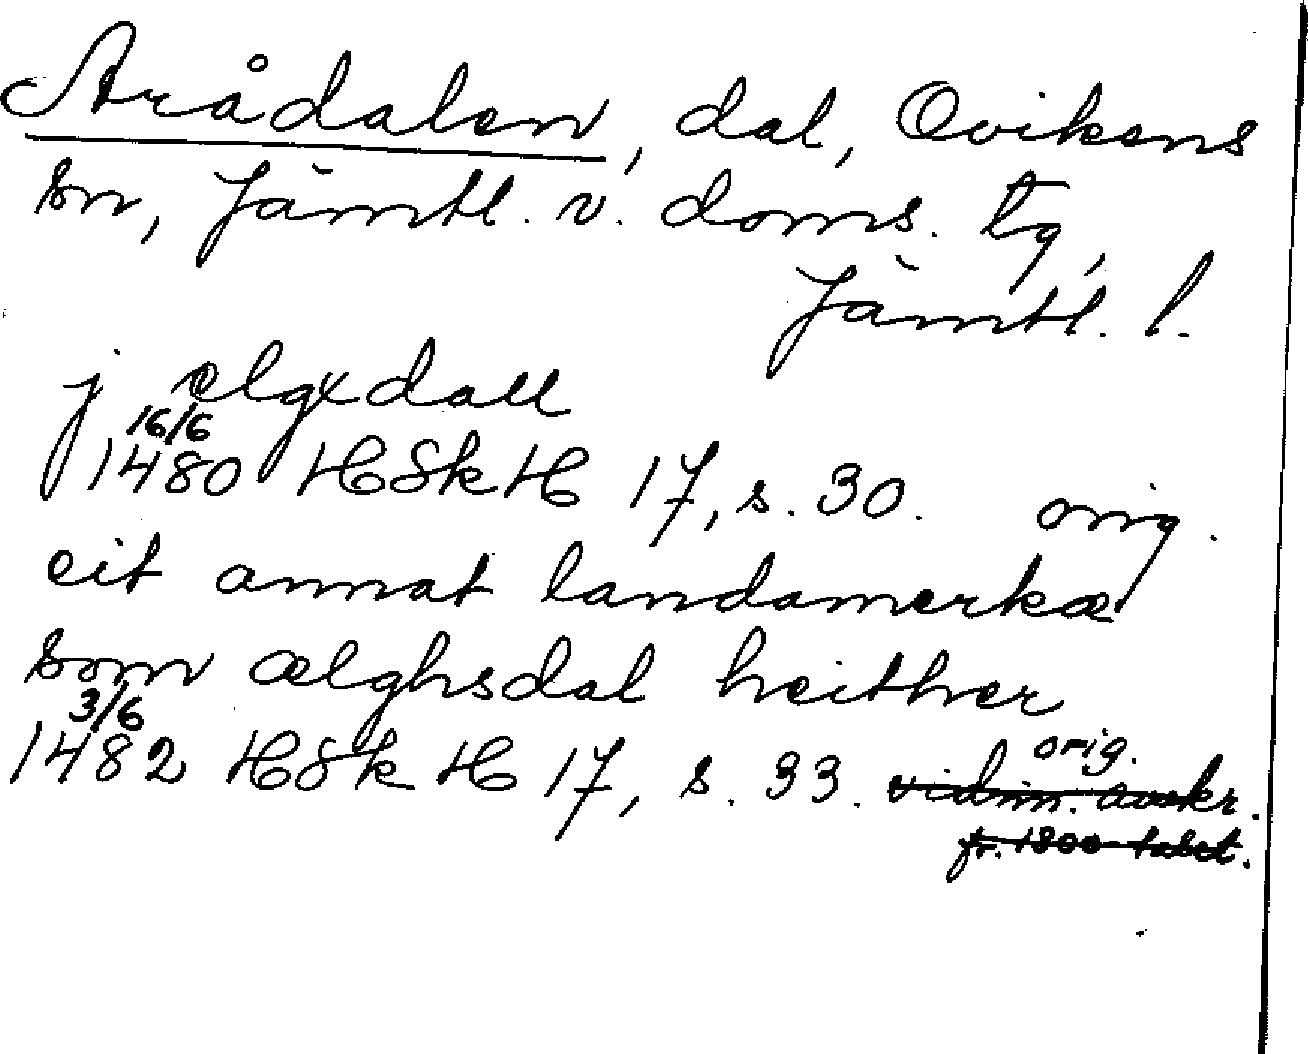 Arådalen, dal, Ovikens
sn, Jämtl. v. doms. tg,
Jämtl. l.
j elgxdall
16/6
1480 HSkH 17, s. 30. orig.
eit annat landamerkæ
som ælghsdal heither
3/6
orig.
1482 HSkH 17, s. 33. vidim. avskr.
fr. 1800-talet.